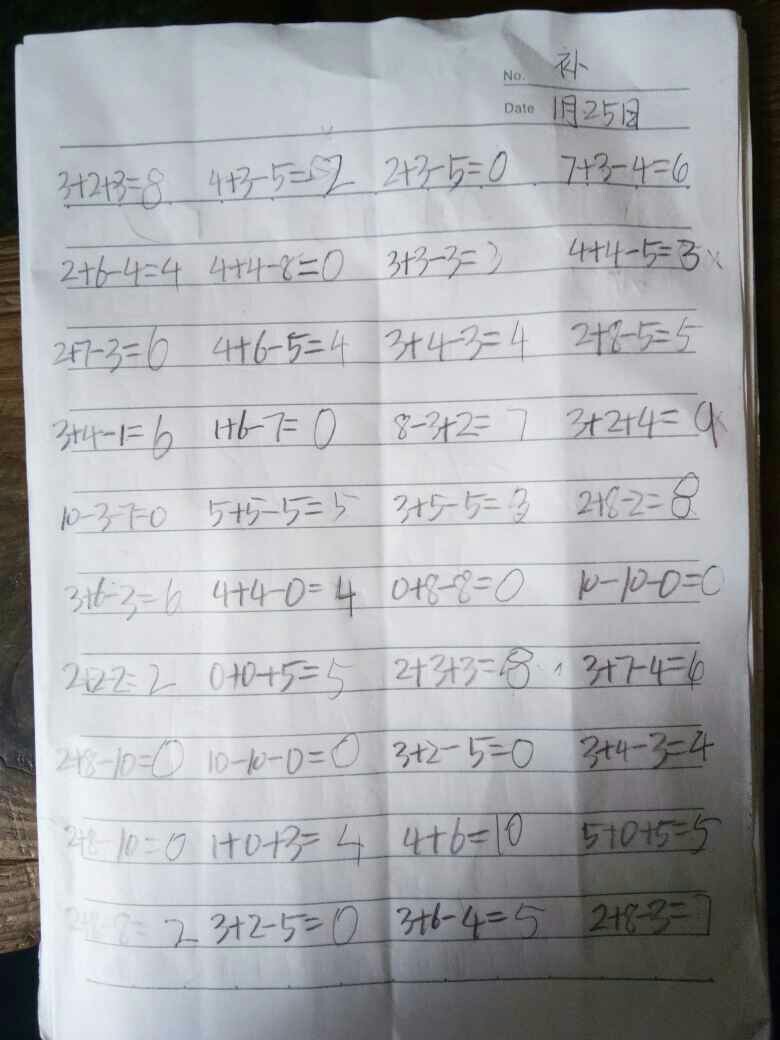 No. 补
Date 1月25日
3+2+3=8 4+3-5=2 2+3-5=0 7+3-4=6
2+6-4=4 4+4-8=0 3+3-3=3 4+4-5=3 ×
2+7-3=6 4+6-5=4 3+4-3=4 2+8-5=5
3+4-1=6 1+6-7=0 8-3+2=7 3+2+4=9
10-3-7=0 5+5-5=5 3+5-5=3 2+8-2=8
3+6-3=6 4+4-0=4 0+8-8=0 10-10-0=0
2+2-2=2 0+0+5=5 2+3+3=8 3+7-4=6
2+8-10=0 10-10-0=0 3+2-5=0 3+4-3=4
2+8-10=0 1+0+3=4 4+6=10 5+0+5=5
2+8-8=2 3+2-5=0 3+6-4=5 2+8-3=7